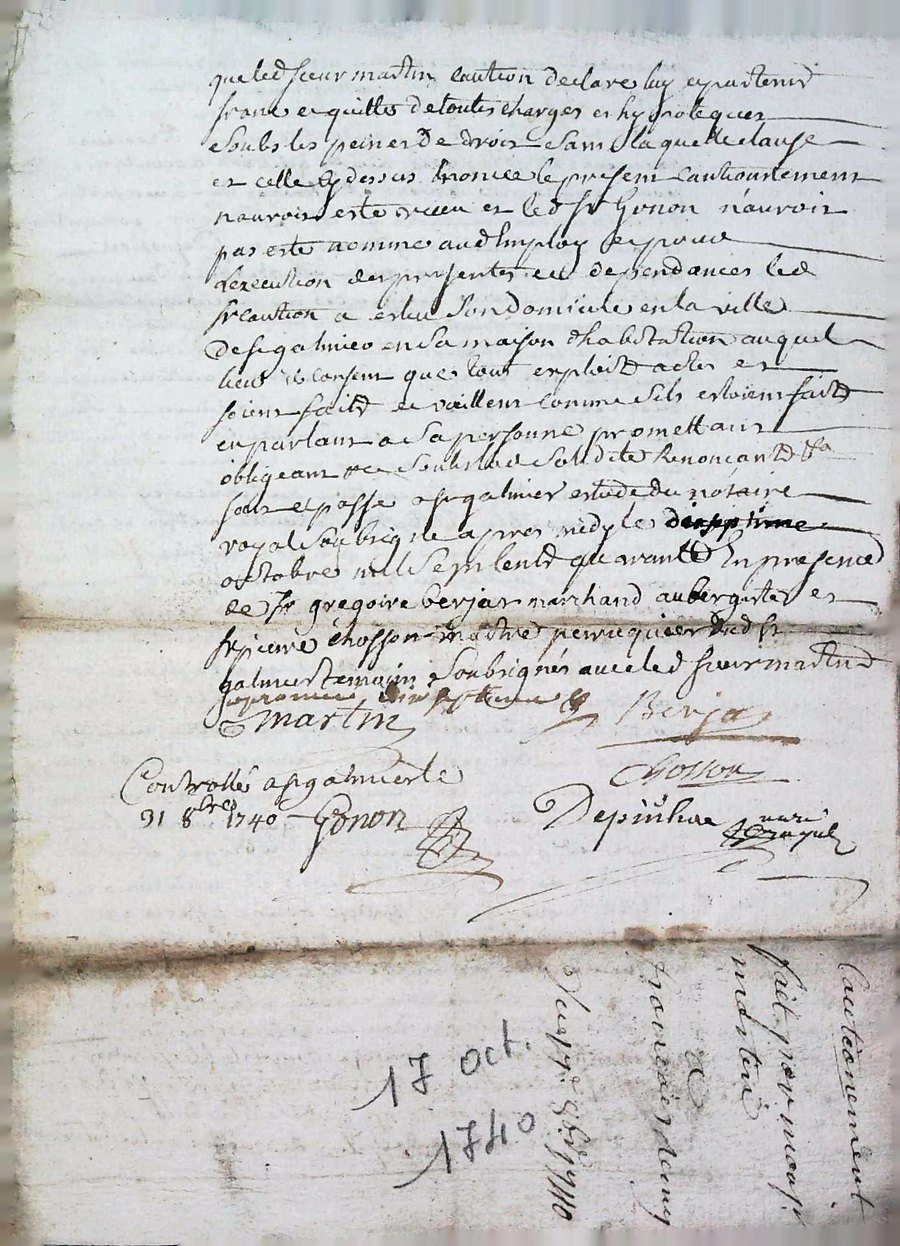 que led sieur martin caution declare luy apartenir
franc et quitte de toutes charges et hypoteques
soubs les peines de droit sans laquelle clause
et celle cy dessus enoncée le present cautionement
nauroit esté receu et led sr Gonon n'auroit
pas esté nommé aud Employ et pour
Lexecution des presentes et dependances led
sr caution a esleu son domicile en la ville
de st galmier en sa maison d'habitation auquel
lieu il consent que tous exploits actes et
soient faits et vaillent comme sils estoient faits
en parlant a sa personne promettant
obligeant &c soubs lad solidité Renonçant &a
fait et passé a st galmier estude du notaire
royal soubsigné apres midy le dixseptieme
octobre mil sept cent quarante En presence
de sr gregoire berjat marchand aubergiste et
sr pierre chosson maitre peruquier dud st
galmier temoins soubsignés avec led sieur martin
dixseptieme
Martin Berja
Chosson
Controllé a st galmier le
31 8bre 1740 Gonon Depiuhac notre Royal
Cautionement
fait par
martin
a
17 oct.
1740